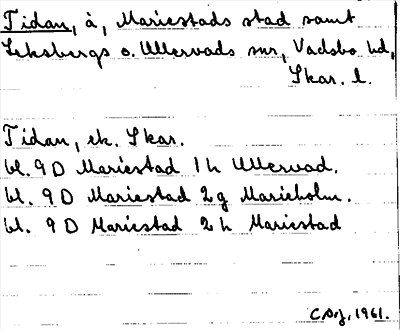 Tidan, å, Mariestads stad samt
Leksbergs o. Ullervads snr, Vadsbo hd,
Skar. l.
Tidan, ek. Skar.
bl. 9D Mariestad 1h Ullervad.
bl. 9D Mariestad 2g Marieholm.
bl. 9D Mariestad 2h Mariestad
1961.